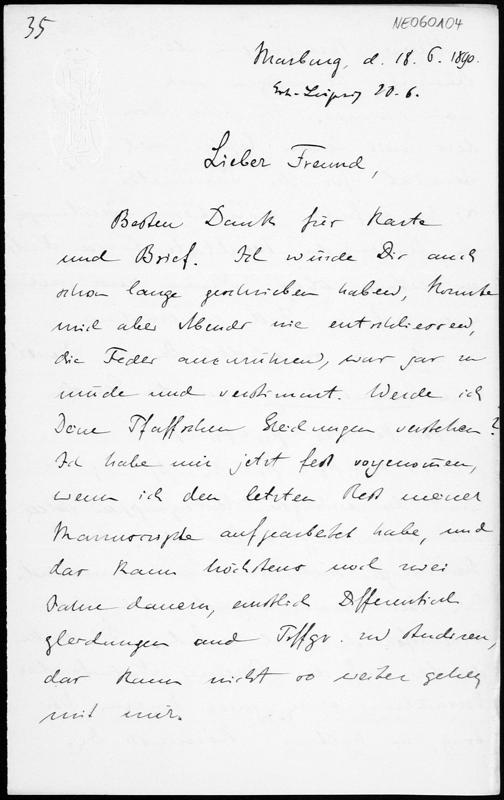 35
NE060104
Marburg, d. 18. 6. 1890.
Erh. Leipzig 20. 6.
Lieber Freund,
Besten Dank für Karte
und Brief. Ich würde Dir auch
schon lange geschrieben haben, konnte
mich aber Abends nie entschliessen,
die Feder anzurühren, war gar zu
müde und verstimmt. Werde ich
Deine Pfaffschen Gleichungen verstehen?
Ich habe mir jetzt fest vorgenom̄en,
wenn ich den letzten Rest meiner
Manuscripte aufgearbeitet habe, und
das kann höchstens noch zwei
Jahre dauern, endlich Differential
gleichungen und Tffgr. zu studiren,
das kann nicht so weiter gehen
mit mir.